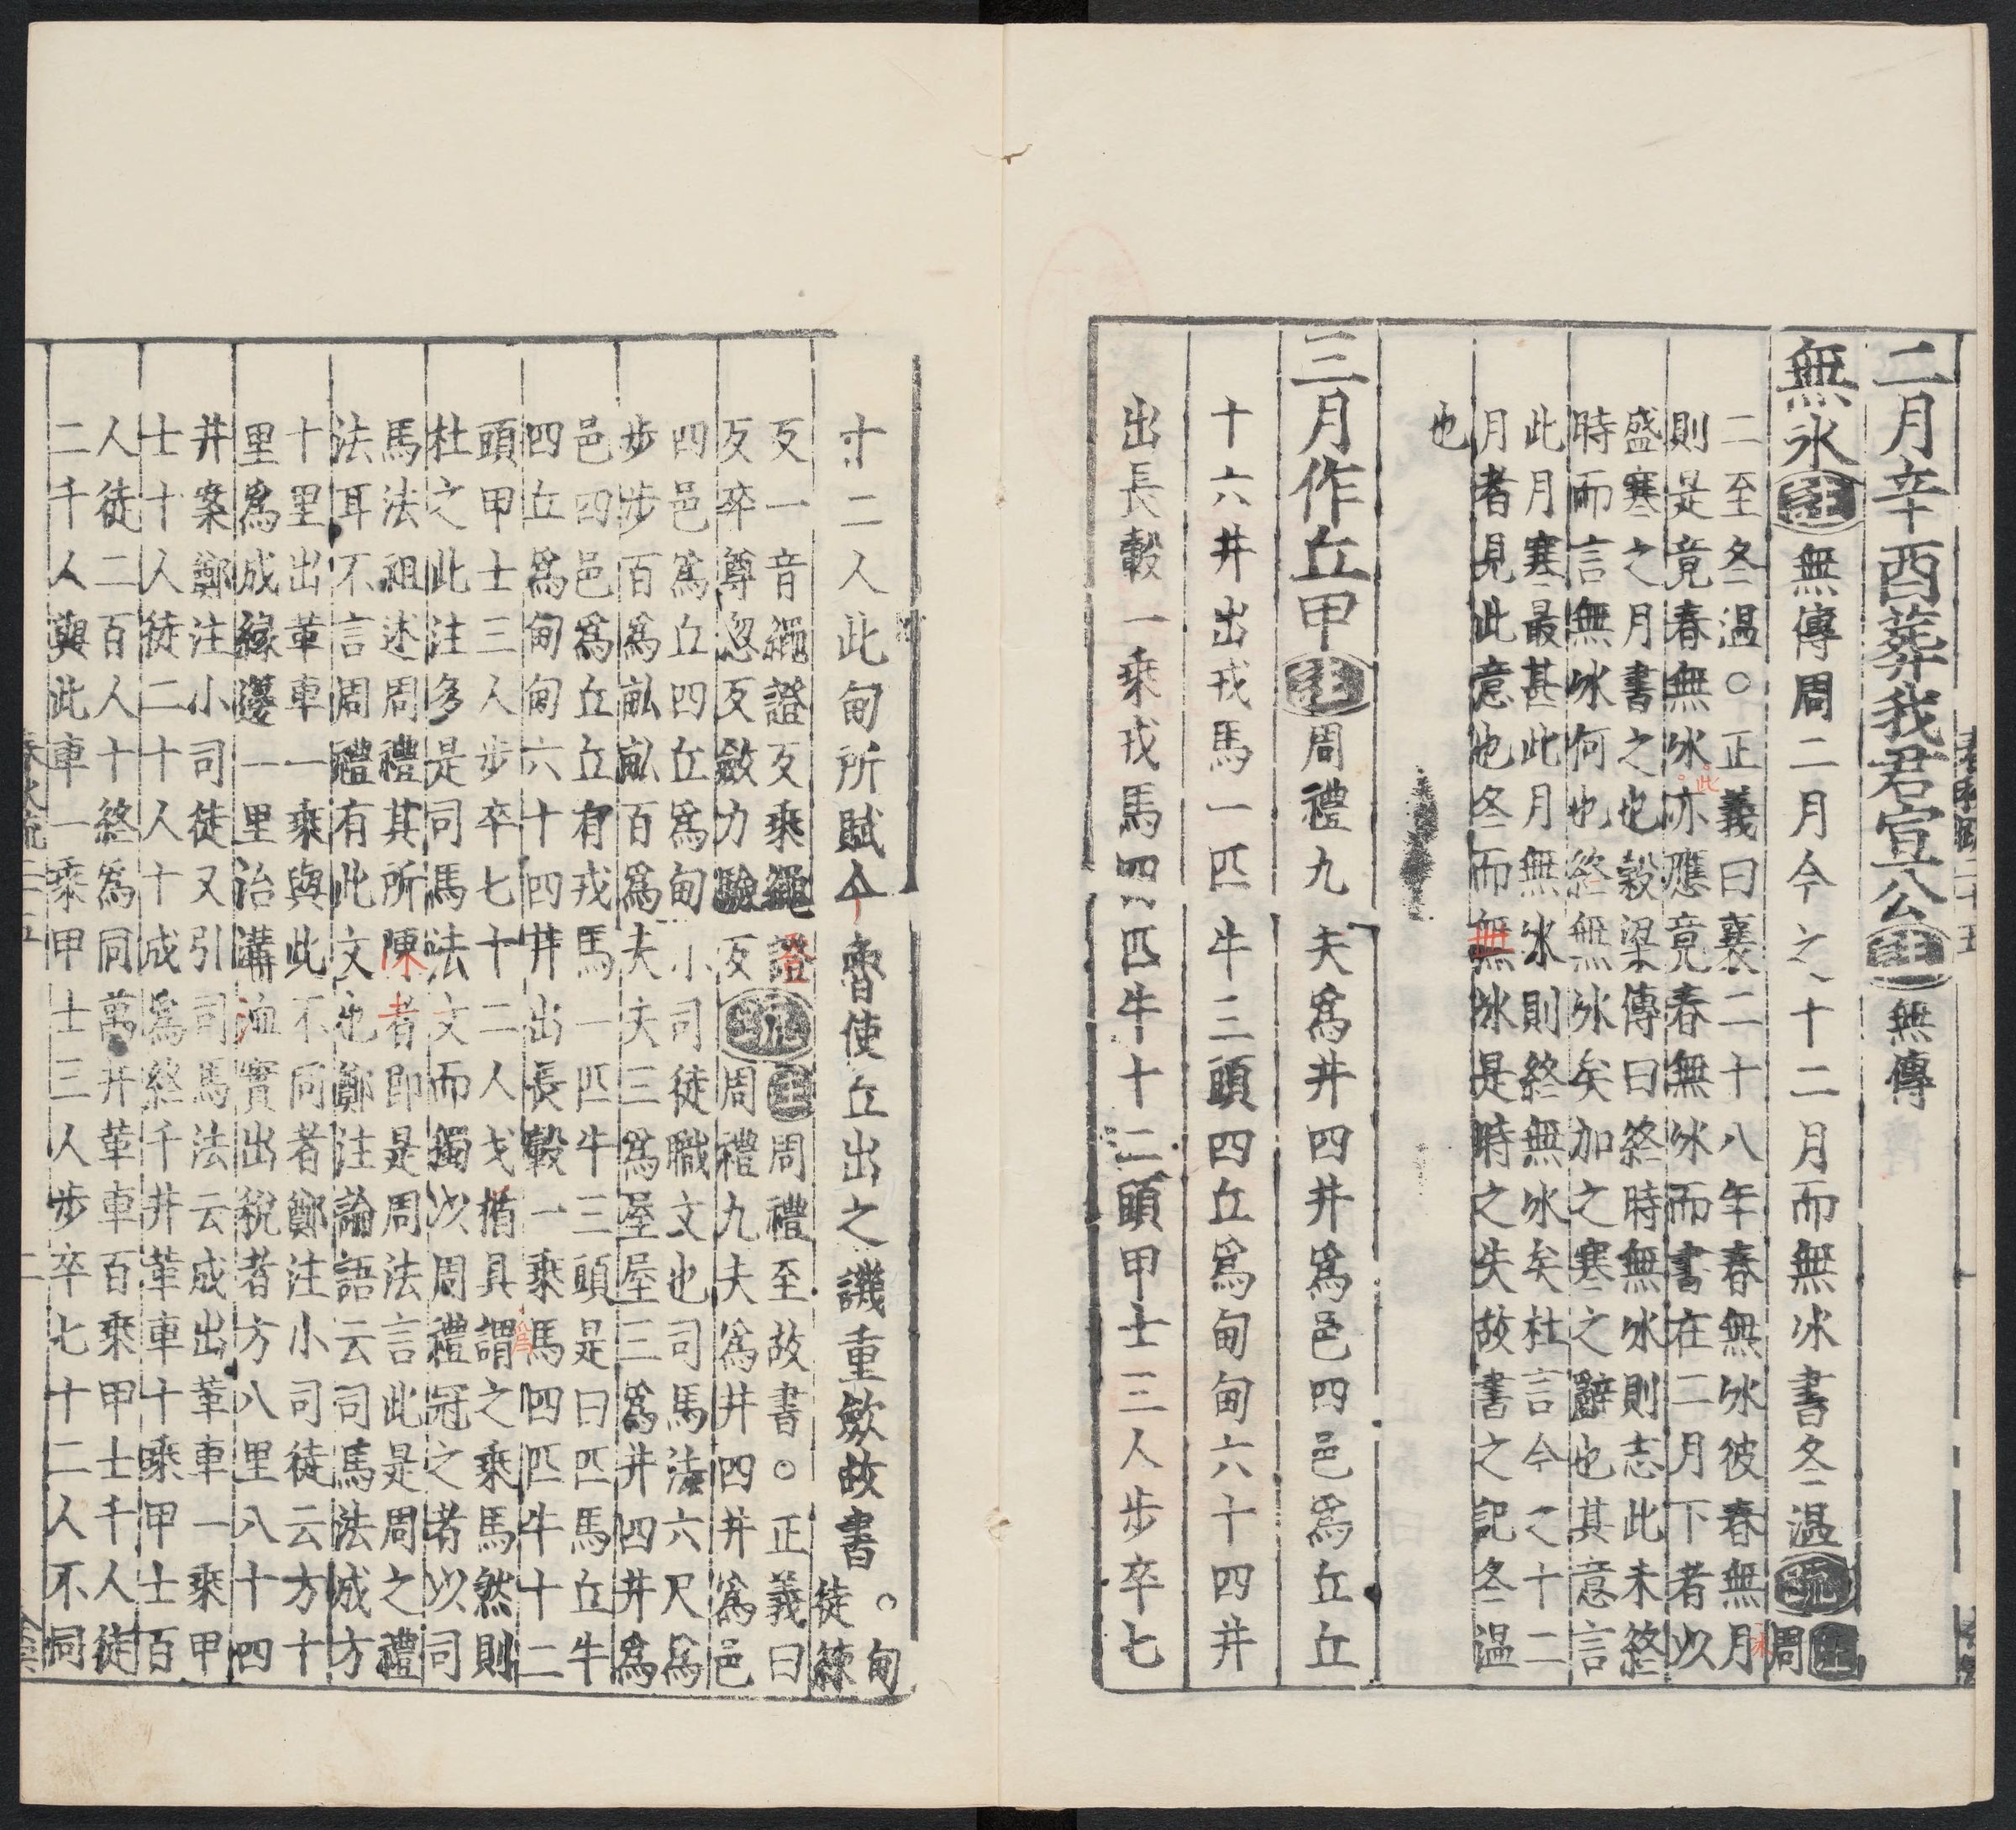 二月辛酉葬我君宣公注無傳
無冰注無傳周二月今之十二月而無冰書冬溫疏注周
二至冬溫○正義曰襄二十八年春無冰彼春無月
則是竟春無冰此亦應竟春無冰而書在二月下者以
盛寒之月書之也穀梁傳曰終時無冰則志此未終
時而言無冰何也終無冰矣加之寒之辭也其意言
此月寒最甚此月無冰則終無冰矣杜言今之十二
月者見此意也冬而無冰是時之失故書之記冬溫
也
三月作丘甲注周禮九夫爲井四井爲邑四邑爲丘丘
十六井出戎馬一匹牛三頭四丘爲甸甸六十四井
出長轂一乘戎馬四匹牛十二頭甲士三人步卒七
十二人此甸所賦今魯使丘出之譏重斂故書○甸
徒練
反一音繩證反乘繩證反卒尊忽反斂力驗反疏
注周禮至故書○正義曰
周禮九夫爲井四井爲邑
四邑爲丘四丘爲甸小司徒職文也司馬法六尺爲
步步百爲畝畝百爲夫夫三爲屋屋三爲井四井爲
邑四邑爲丘丘有戎馬一匹牛三頭是曰匹馬丘牛
四丘爲甸甸六十四井出長轂一乘馬四匹牛十二
頭甲士三人步卒七十二人戈楯具謂之乘馬然則
杜之此注多是司馬法文而獨以周禮冠之者以司
馬法祖述周禮其所陳者即是周法言此是周之禮
法耳不言周禮有此文也鄭注論語云司馬法成方
十里出革車一乘與此不同者鄭注小司徒云方十
里爲成緣邊一里治溝洫實出稅者方八里八十四
井案鄭注小司徒又引司馬法云成出革車一乘甲
士十人徒二十人十成爲終千井革車十乘甲士百
人徒二百人十終爲同萬井革車百乘甲士千人徒
二千人與此車一乘甲士三人步卒七十二人不同